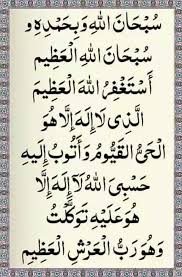 سُبْحَانَ اللهِ وَبِحَمْدِهِ وَ
سُبْحَانَ اللهِ الْعَظِيم
أَسْتَغْفِرُ اللهَ الْعَظِيمَ
الَّذِي لَا إِلَهَ إِلَّا هُوَ
الْحَيُّ الْقَيُّومُ وَأَتُوبُ إِلَيهِ
حَسْبِيَ اللهُ لَآ إِلَهَ إِلَّا
هُوَ عَلَيْهِ تَوَكَّلْتُ
وَهُوَ رَبُّ الْعَرْشِ الْعَظِيمِ